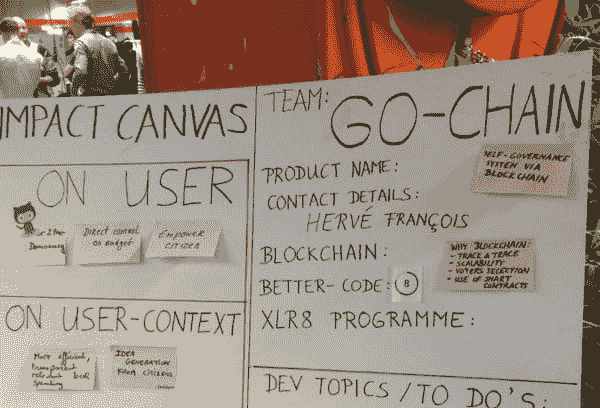 IMPACT CANVAS
ON USER
Democracy
Direct control
on budget
EMPOWER
CITIZEN
ON USER-CONTEXT
More efficient,
transparent
relevant local
spending
IDEA
GENERATION
FROM CITIZENS
TEAM: GO-CHAIN
PRODUCT NAME:
SELF-GOVERNANCE
SYSTEM VIA
BLOCKCHAIN
CONTACT DETAILS:
HERVÉ FRANÇOIS
BLOCKCHAIN:
BETTER-CODE: 8
WHY BLOCKCHAIN:
- TRACK & TRACE
- SCALABILITY
- VOTERS SELECTION
- USE OF SMART
CONTRACTS
XLR8 PROGRAMME:
DEV TOPICS / TO DO'S: